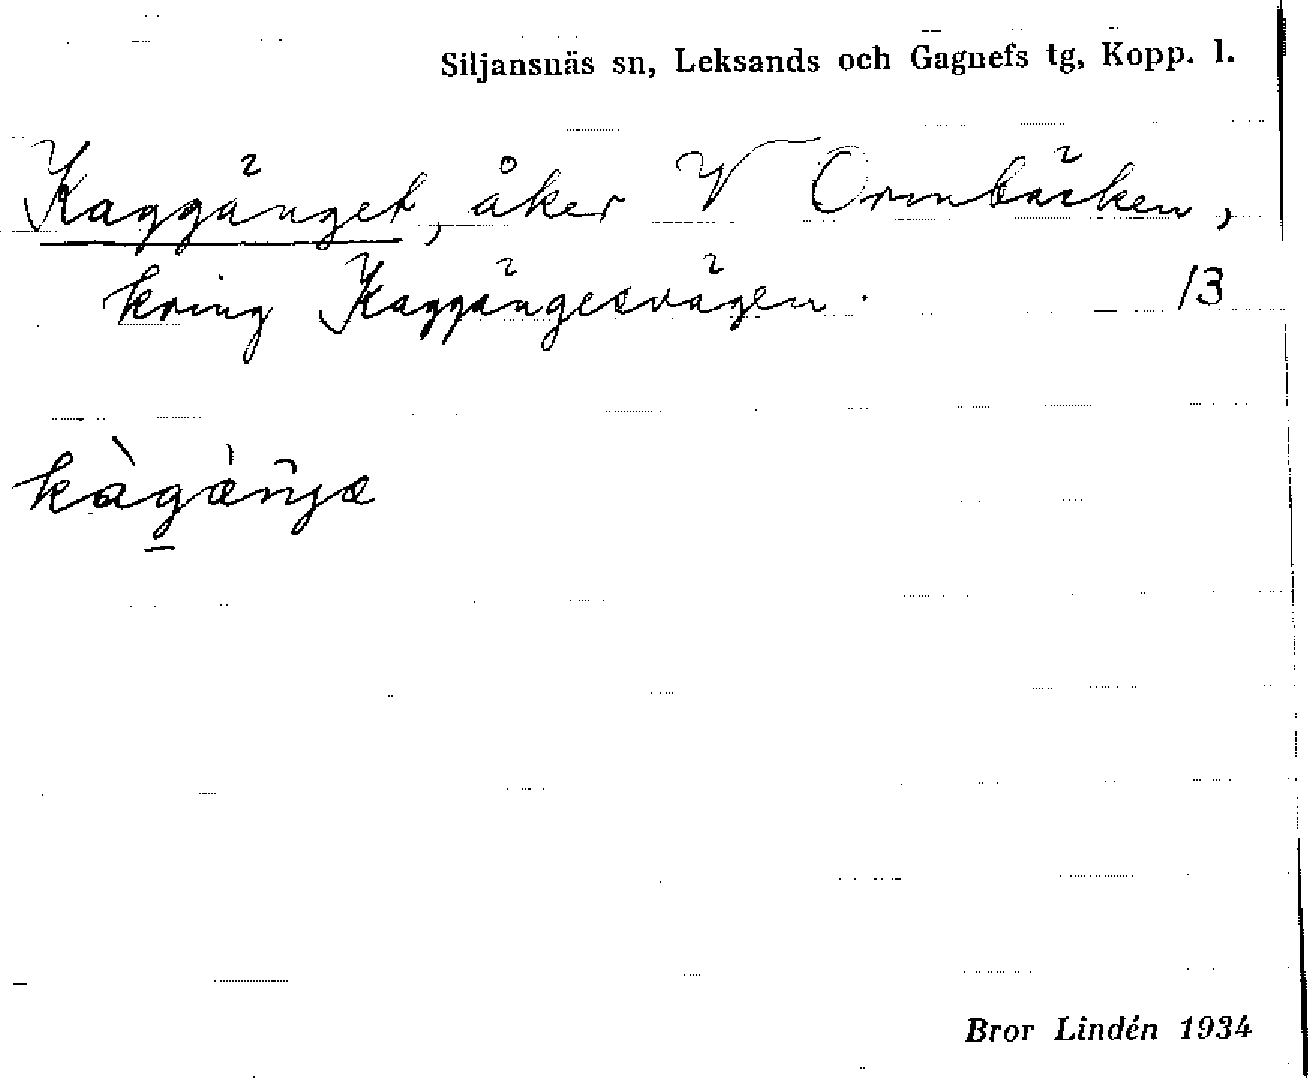 Siljansnäs sn, Leksands och Gagnefs tg, Kopp. l.
Kaggänget, åker V Ormbäcken,
kring Kaggängesvägen. 13
Bror Lindén 1934